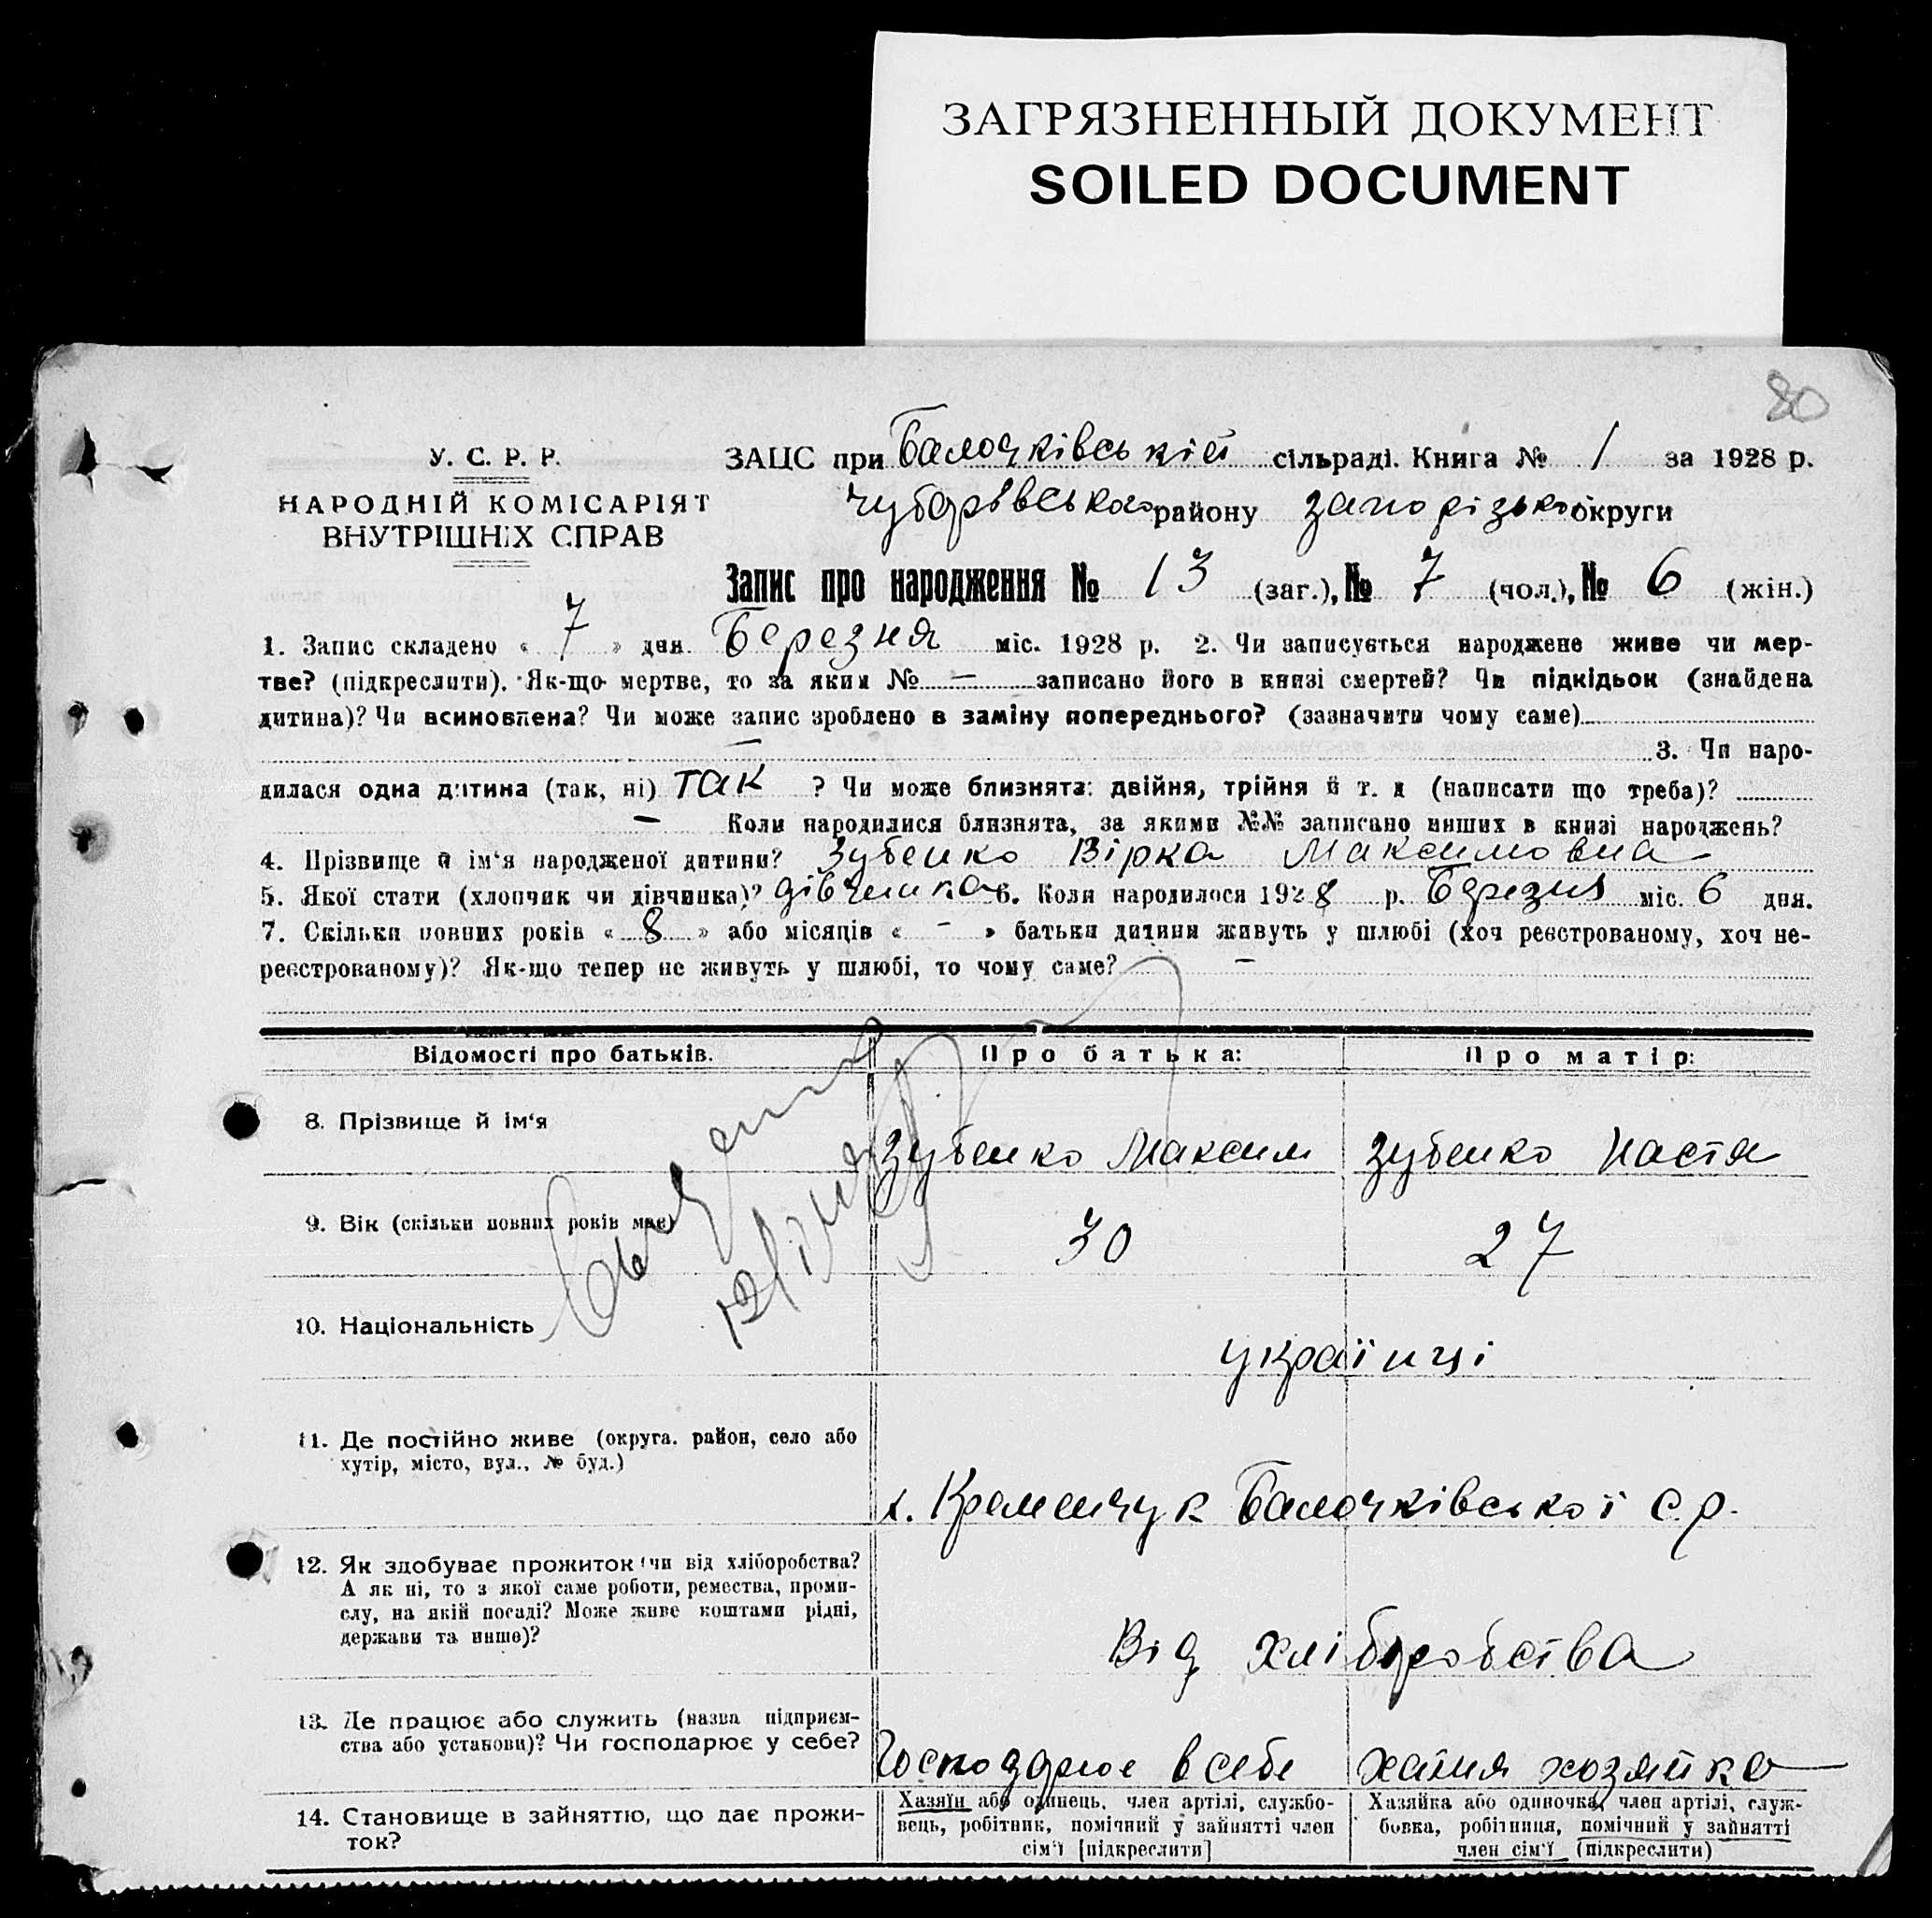 ЗАГРЯЗНЕННЫЙ ДОКУМЕНТ
SOILED DOCUMENT
80
У. С. Р. Р.
НАРОДНІЙ КОМІСАРІЯТ
ВНУТРІШНІХ СПРАВ
ЗАЦС при Балочківській сільраді. Книга № 1 за 1928 р.
Чубарівського району Запорізької округи
Запис про народження № 13 (заг.), № 7 (чол.), № 6 (жін.)
1. Запис складено « 7 » дня Березня міс. 1928 р. 2. Чи записується народжене живе чи мер-
тве? (підкреслити). Як-що мертве, то за яким № — записано його в книзі смертей? Чи підкідьок (знайдена
дитина)? Чи всиновлена? Чи може запис зроблено в заміну попереднього? (зазначити чому саме)
— 3. Чи наро-
дилася одна дитина (так, ні) так ? Чи може близнята: двійня, трійня й т. д (написати що треба)?
— Коли народилися близнята, за якими №№ записано инших в книзі народжень?
4. Прізвище й ім'я народженої дитини? Зубенко Вірка Максимовна
5. Якої стати (хлопчик чи дівчинка)? дівчинка 6. Коли народилося 1928 р. Березня міс. 6 дня.
7. Скільки повних років « 8 » або місяців « - » батьки дитини живуть у шлюбі (хоч реєстрованому, хоч не-
реєстрованому)? Як-що тепер не живуть у шлюбі, то чому саме? —
Відомості про батьків. Про батька: Про матір:
8. Прізвище й ім'я Зубенко Максим Зубенко Настя
9. Вік (скільки повних років має) 30 27
10. Національність українці
11. Де постійно живе (округа. район, село або
хутір, місто, вул., № буд.)
х. Кременчук Балочківської с.р.
12. Як здобуває прожиток (чи від хліборобства?
А як ні, то з якої саме роботи, ремества, проми-
слу, на якій посаді? Може живе коштами рідні,
держави та инше)?
Від хліборобства
13. Де працює або служить (назва підприєм-
ства або установи)? Чи господарює у себе?
Господарює в себе хатня хозяйка
14. Становище в зайняттю, що дає прожи-
ток?
Хазяїн або одинець, член артілі, службо-
вець, робітник, помічний у зайнятті член
сім'ї [підкреслити]
Хазяйка або одиночка, член артілі, служ-
бовка, робітниця, помічний у зайнятті
член сім'ї (підкреслити)